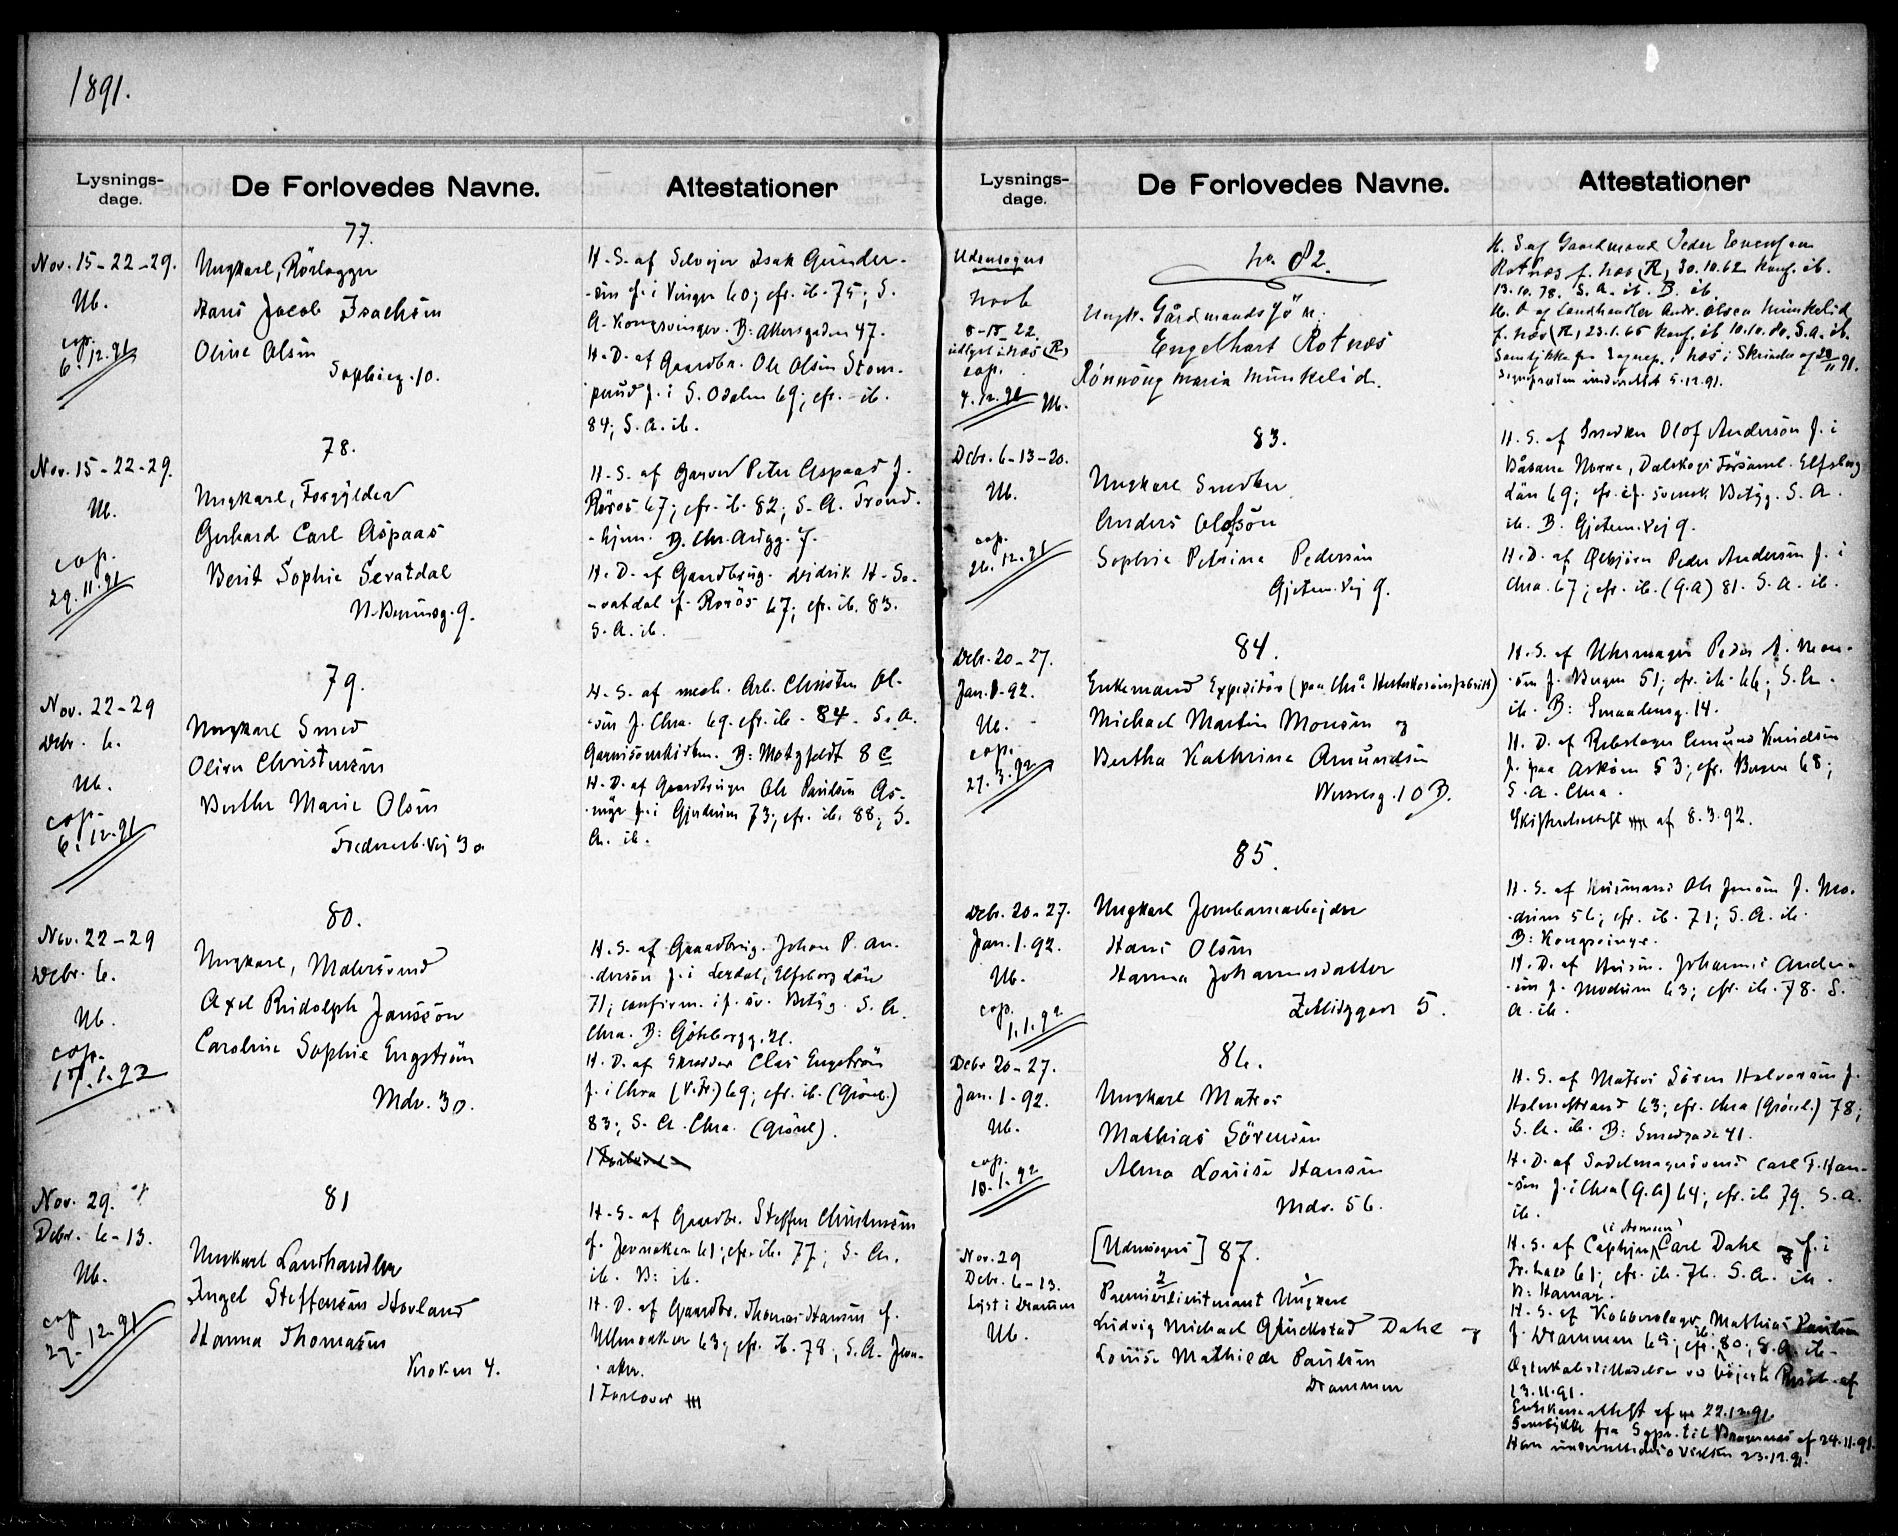 1891.
Lysnings-
dage.
De Forlovedes Navne.
Attestationer
77.
Nov. 15-22-29.
Ub.
cop.
6.12.91
Ungkarl, Rörlægger
Hans Jacob Isachsen
Oline Olsen
Sophieg. 10.
H. S. af Selveier Isak Gunder-
-sen f. i Vinger 60; cfr. ib. 75; S.
A. Kongsvinger. B: Akersgaden 47.
H. D. af Gaardbr. Ole Olsen Stom-
f. i S. Odalen 69; cfr. ib.
84; S. A. ib.
78.
Nov. 15-22-29.
Ub.
cop.
29.11.91
Ungkarl, Forgylder
Gerhard Carl Aspaas
Berit Sophie Sevatdal
9.
H. S. af Garver Peter Aspaas f.
Röros 67; cfr. ib. 82; S. A. Trond-
-hjem. B. Chr. Augg. 7.
H. D. af Gaardbrug. Didrik H. Se-
-vatdal f. Rorös 67; cfr. ib. 83.
S. A. ib.
79.
Nov. 22-29
Debr. 6.
Ub.
cop.
6.12.91
Ungkarl Smed
Oliver Christensen
Berthe Marie Olsen
H. S. af mech. Arb. Christen Ol-
-sen f. Chra. 69. cfr. ib. 84. S. A.
Garnisonskirken. B: Motzfeldt 8 c
H. D. af Gaardbruger Ole Paulsen As-
f. i Gjerdrum 73; cfr. ib. 88; S.
A. ib.
80.
Nov. 22-29
Debr. 6.
Ub.
cop.
17.1.92
Ungkarl, Malersvend
Axel Rudolph Jansson
Caroline Sophie Engström
Mdv. 30.
H. S. af Gaardbrug. Johan P. An-
-derson f. i Lerdal, Elfsborg Län
71; confirm. if. sv. Betyg. S. A.
Chra. B: Göteborgg. 21.
H. D. af Skrædder Clas Engström
f. i Chra (V. Fr.) 69; cfr. ib. (Grönl.)
83; S. A. Chra. (Grönl).
81
Nov. 29.
Debr. 6-13.
Ub.
cop
27.12.91
Ungkarl Landhandler
Ingel Steffensen Hovland
Hanna Thomasen
Kroken 4.
H. S. af Gaardbr. Steffen Christensen
f. Jevnaker 61; cfr. ib. 77; S. A.
ib. B: ib.
H. D. af Gaardbr. Thomas Hansen f.
63; cfr. ib. 78; S. A. Jevn-
-aker.
1 Forlover
Lysnings-
dage.
De Forlovedes Navne.
Attestationer
No. 82.
Udensogns
8-15-22.
udlyst i Næs (R)
cop.
4.12.91 Ub.
Ungk. Gårdmandssön
Engelhart Rotnæs
Rönnaug Maria Munkelid.
H. S. af Gaardmand Peder Evensen
Rotnæs f. Næs (R) 30.10.62 konf. ib.
13.10.78. S. A. ib. B. ib
H. D af Landhandler Andr. Olsen Munkelid
f. Næs (R) 23.1.65 konf. ib 10.10.80. S. A. ib.
Samtykke fra Sognep. i Næs i Skrivelse af 28/11 91.
Sognepræsten underrettet 5.12.91.
83.
Debr. 6-13-20.
Ub.
cop.
26.12.91
Ungkarl Snedker
Anders Olofson
Sophie Petrine Pedersen
Gjetem. vej 9.
H. S. af Snedker Olof Anderson f. i
Båsane Norra, Dalskogs Församl. Elfsborg
Län 69; cfr. if. svensk Betyg. S. A.
ib. B. Gjetem. vej 9.
H. D. af Ölbjörn Peder Andersen f. i
Chra. 67; cfr. ib. (G.A) 81. S. A. ib.
84.
Debr. 20-27.
Jan. 1-92.
Ub.
cop.
27.3.92
Enkemand Expeditör
Michael Martin Monsen og
Bertha Kathrine Amundsen
10 B.
H. S. af Uhrmager Peder A. Mon-
-sen f. Bergen 51; cfr. ib. 66; S. A.
ib. B: Smaalensg. 14.
H. D. af Rebslager Amund Knudsen
f. paa Asköen 53; cfr. Bergen 68;
S. A. Chra.
Skifteattest af 8.3.92.
85.
Debr. 20-27.
Jan. 1. 92.
Ub.
cop.
1.1.92
Ungkarl Jernbanearbejder
Hans Olsen
Hanna Johannesdatter
Zetlitzgaden 5.
H. S. af Husmand Ole Jensen f. Mo-
-drum 56; cfr. ib. 71; S. A. ib.
B: Kongsvinger.
H. D. af Husm. Johannes Ander-
-sen f. Modum 63; cfr. ib. 78. S.
A. ib.
86.
Debr 20-27.
Jan. 1-92.
Ub.
cop.
10.1.92
Ungkarl Matros
Mathias Sörensen
Alma Louise Hansen
Mdv. 56.
H. S. af Matros Sören Halvorsen f.
Holmestrand 63; cfr. Chra (Grönl.) 78;
S. A. ib. B: Smedgade 41.
H. D. af Sadelmagersvend Carl F. Han-
-sen f. i Chra (G.A) 64; cfr. ib 79. S. A.
ib.
[Udensogns] 87.
Nov. 29
Debr. 6-13.
Lyst i Drammen
Ub.
Premierlieutenant Ungkarl
Ludvig Michael Glückstad Dahl og
Louise Mathilde Paulsen
Drammen
H. S. af Captein (i Armeen) Carl Dahl f. i
Fr.hald 61; cfr. ib. 76. S. A. ib.
B: Hamar.
H. D. af Kobberslager Mathias Paulsen
f. Drammen 65; cfr. ib 80; S. A. ib.
13.11.91.
Enkekasseattest af 22.12.91.
Samtykke fra Sgpr. til Bragernes af 24.11.91.
23.12.91.